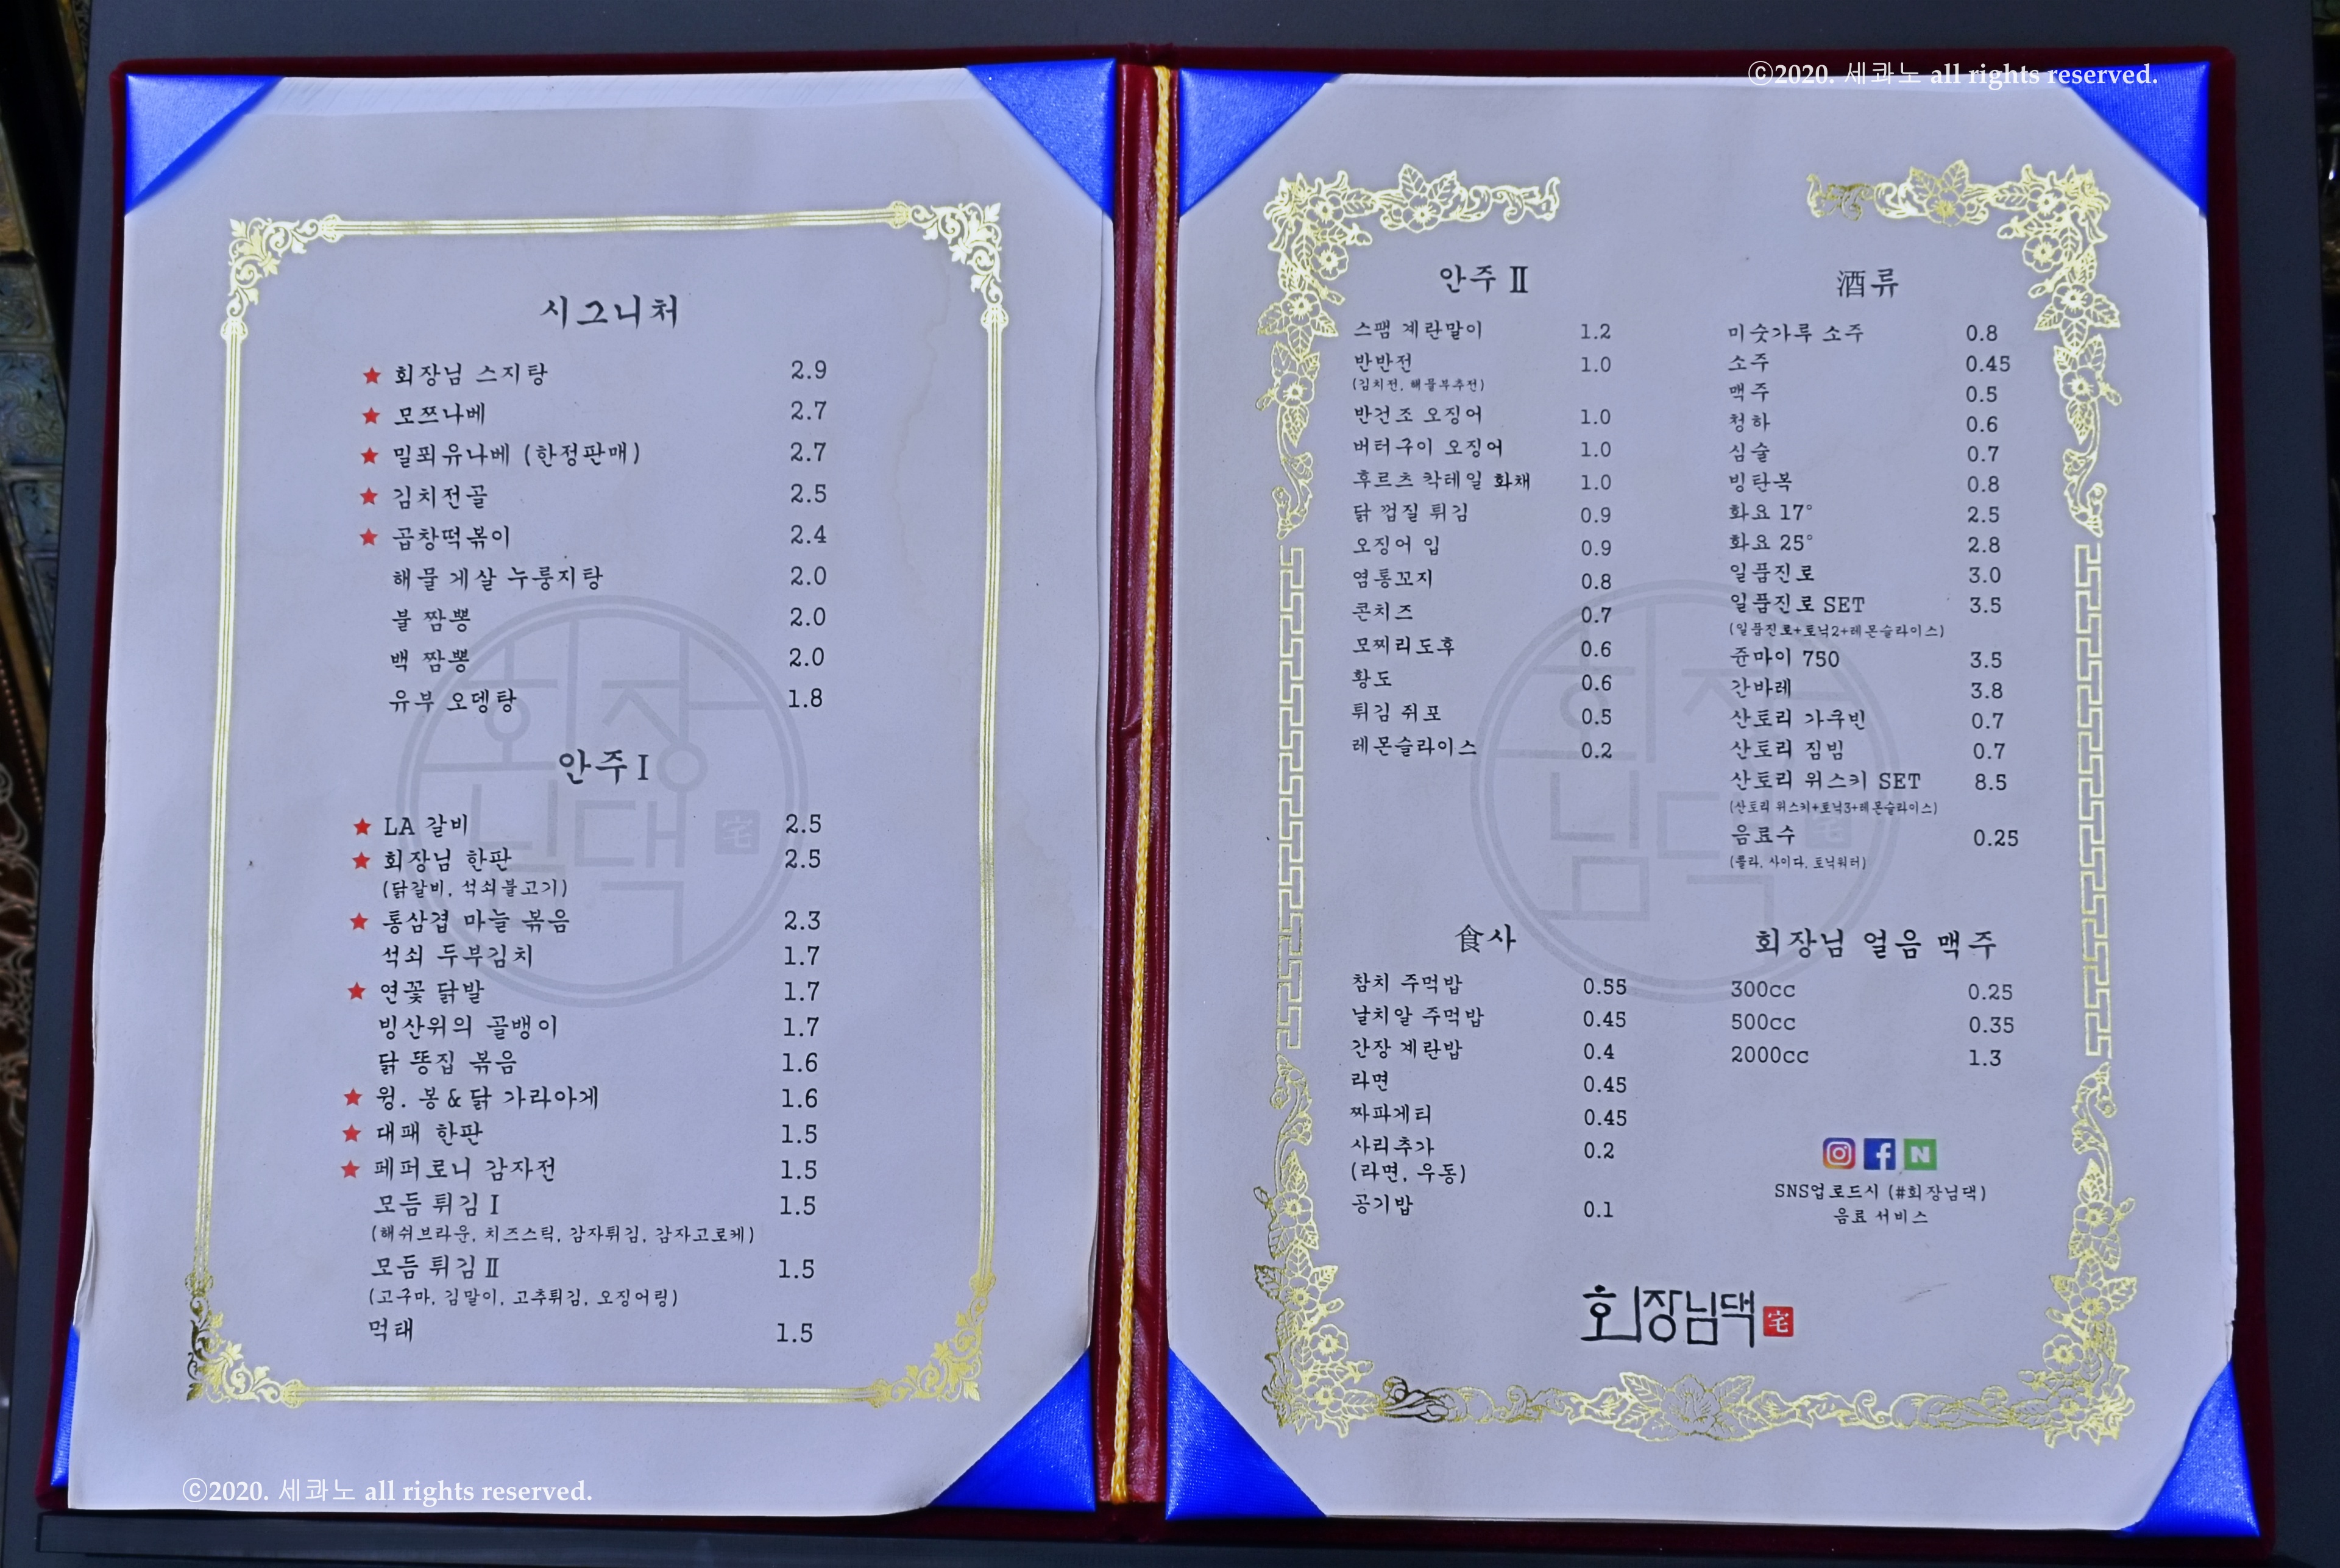 ⓒ2020. 세콰노 all rights reserved.
시그니처
★ 회장님 스지탕 2.9
★ 모쯔나베 2.7
★ 밀푀유나베 (한정판매) 2.7
★ 김치전골 2.5
★ 곱창떡볶이 2.4
해물 게살 누룽지탕 2.0
불 짬뽕 2.0
백 짬뽕 2.0
유부 오뎅탕 1.8
안주 I
★ LA 갈비 2.5
★ 회장님 한판 2.5
(닭갈비, 석쇠불고기)
★ 통삼겹 마늘 볶음 2.3
석쇠 두부김치 1.7
★ 연꽃 닭발 1.7
빙산위의 골뱅이 1.7
닭 똥집 볶음 1.6
★ 윙. 봉 & 닭 가라아게 1.6
★ 대패 한판 1.5
★ 페퍼로니 감자전 1.5
모듬 튀김 I 1.5
(해쉬브라운, 치즈스틱, 감자튀김, 감자고로케)
모듬 튀김 II 1.5
(고구마, 김말이, 고추튀김, 오징어링)
먹태 1.5
회장
님댁
宅
안주 II
스팸 계란말이 1.2
반반전 1.0
(김치전, 해물부추전)
반건조 오징어 1.0
버터구이 오징어 1.0
후르츠 칵테일 화채 1.0
닭 껍질 튀김 0.9
오징어 입 0.9
염통꼬지 0.8
콘치즈 0.7
모찌리도후 0.6
황도 0.6
튀김 쥐포 0.5
레몬슬라이스 0.2
酒류
미숫가루 소주 0.8
소주 0.45
맥주 0.5
청하 0.6
심술 0.7
빙탄복 0.8
화요 17° 2.5
화요 25° 2.8
일품진로 3.0
일품진로 SET 3.5
(일품진로+토닉2+레몬슬라이스)
준마이 750 3.5
간바레 3.8
산토리 가쿠빈 0.7
산토리 짐빔 0.7
산토리 위스키 SET 8.5
(산토리 위스키+토닉3+레몬슬라이스)
음료수 0.25
(콜라, 사이다, 토닉워터)
회장
님댁
宅
食사
참치 주먹밥 0.55
날치알 주먹밥 0.45
간장 계란밥 0.4
라면 0.45
짜파게티 0.45
사리추가 0.2
(라면, 우동)
공기밥 0.1
회장님 얼음 맥주
300cc 0.25
500cc 0.35
2000cc 1.3
f N
SNS업로드시 (#회장님댁)
음료 서비스
회장님댁 宅
ⓒ2020. 세콰노 all rights reserved.